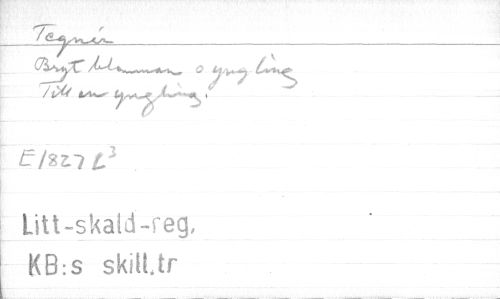 Tegnér
Bryt blomman o yngling
Till en yngling.
E 1827 L³
Litt-skald-reg.
KB:s skill.tr